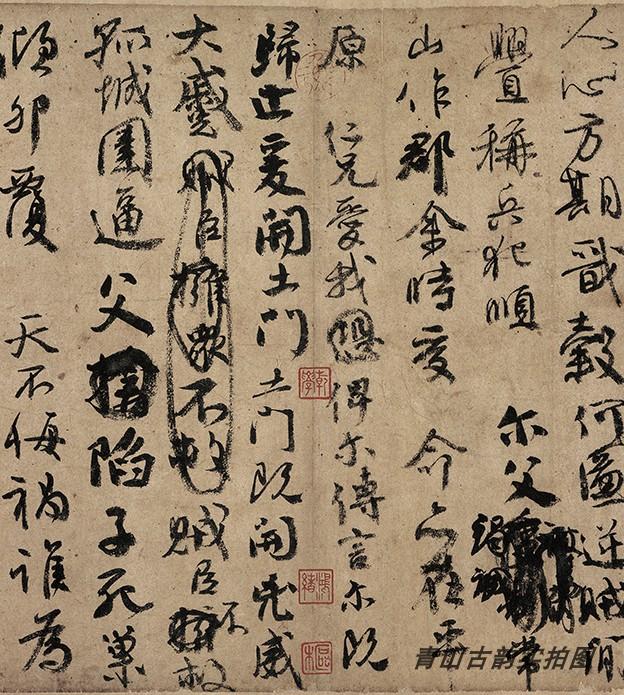 人心方期戩穀何圖逆賊閒
舋稱兵犯順 尒父 常
山作郡余時受 命亦在平
原 仁兄愛我俾尒傳言尒既
歸止爰開土門土門既開凶威
大蹙賊臣擁眾不救賊臣不救
孤城圍逼父陷子死巢
傾卵覆 天不悔禍誰為
乾學
青山古韵实拍图